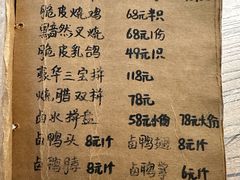 脆皮烧鸡 68元半只
黯然叉烧 68元1份
脆皮乳鸽 49元1只
豪华三宝拼 118元
烧腊双拼 78元
卤水拼盘 58元小份 78元大份
卤鸭头 8元1个 卤鸭翅 8元1个
卤鸭脖 8元1个 卤鸭掌 6元1个